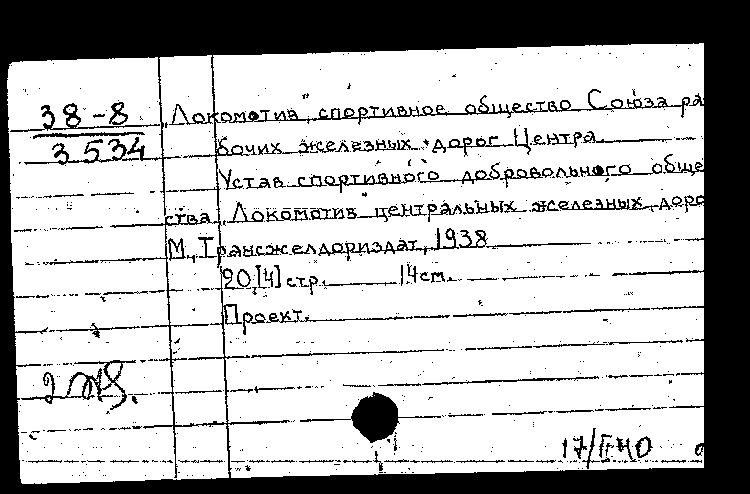 38-8
3534
„Локомотив", спортивное общество Союза ра
бочих железных дорог Центра.
Устав спортивного добровольного обще
ства „Локомотив центральных железных доро
М., Трансжелдориздат, 1938
20,[4] стр. 14 см.
Проект.
17/II 40